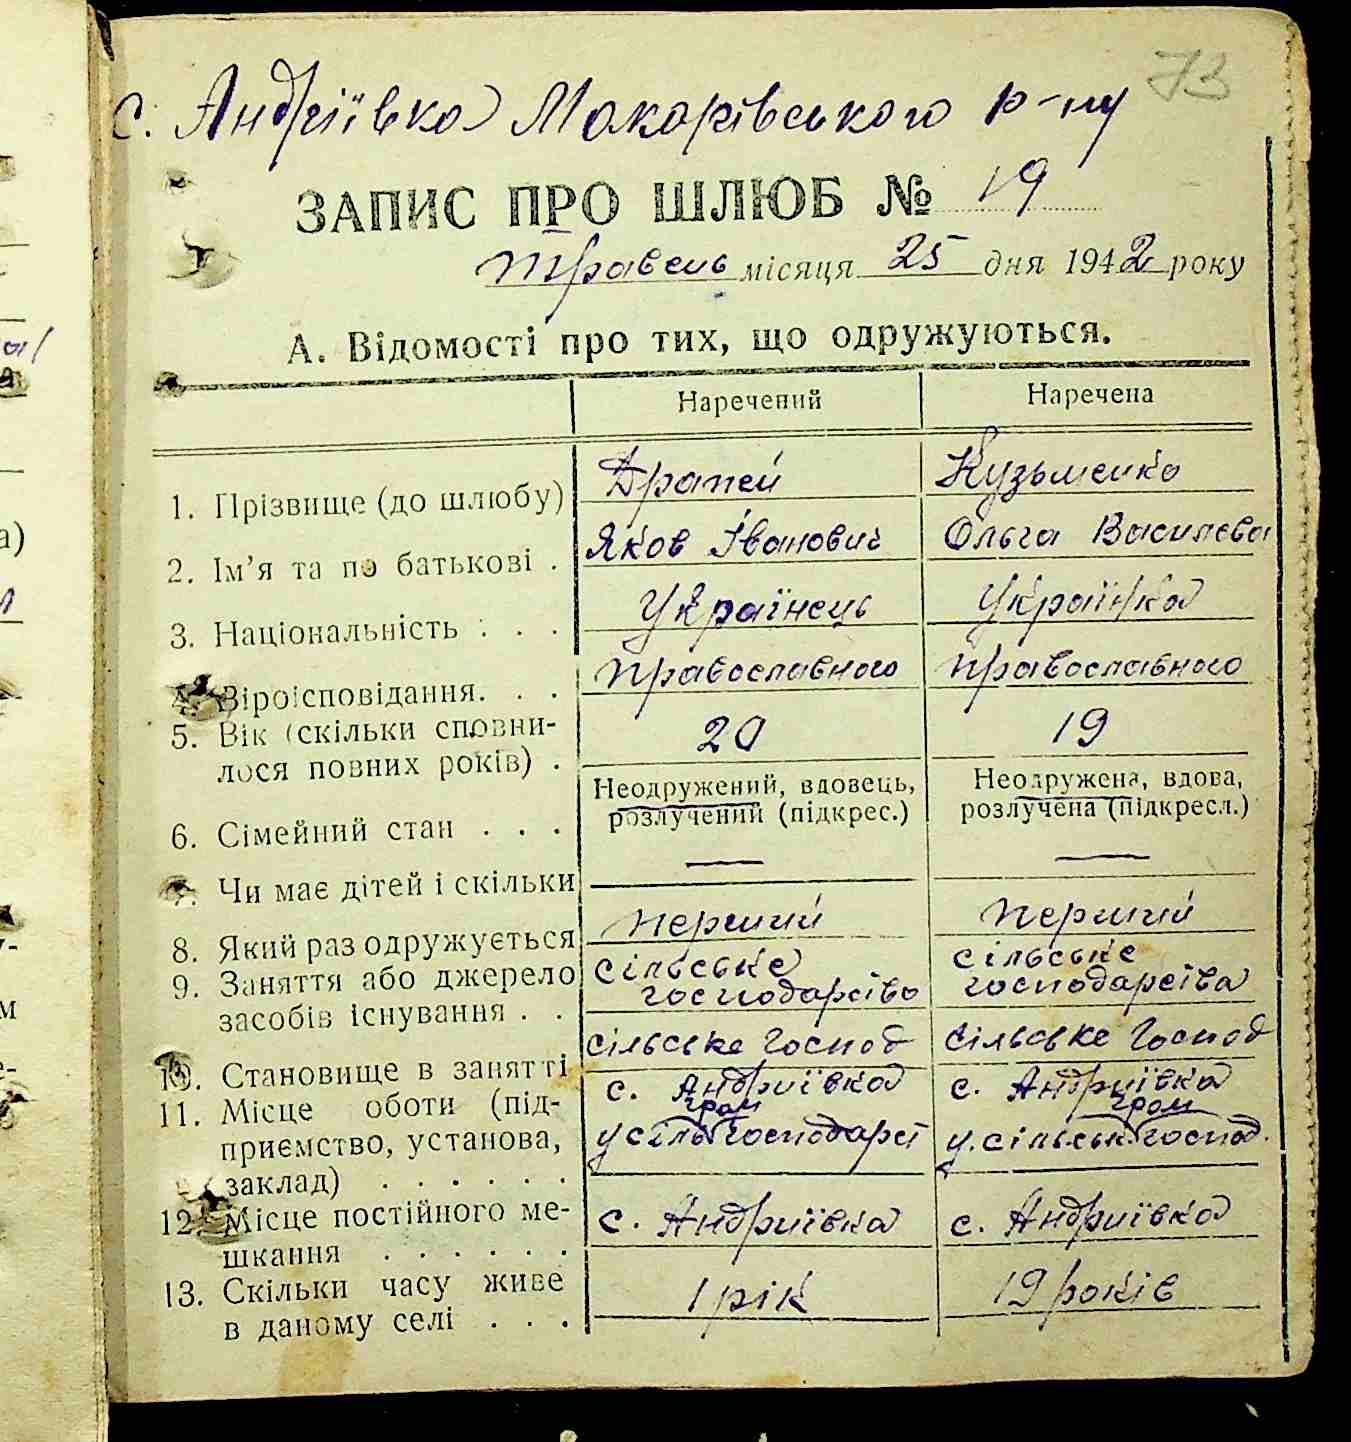 73
с. Андріївка Макарівського р-ну
ЗАПИС ПРО ШЛЮБ № 19
травень місяця 25 дня 1942 року
А. Відомості про тих, що одружуються.
Наречений Наречена
1. Прізвище (до шлюбу) Драпей Кузьменко
2. Ім'я та по батькові . Яков Іванович Ольга Василєва
3. Національність . . . Українець Українка
4. Віроісповідання. . . Православного Православного
5. Вік (скільки сповни-
лося повних років) . 20 19
6. Сімейний стан . . . Неодружений, вдовець, розлучений (підкрес.) Неодружена, вдова, розлучена (підкресл.)
7. Чи має дітей і скільки — —
8. Який раз одружується перший перший
9. Заняття або джерело
засобів існування . . сільське господарсіво сільське господарсіва
10. Становище в занятті сільське господ сільське господ
11. Місце оботи (під-
приємство, установа,
заклад) . . . . . . с. Андриївка у сіль гром господарсі с. Андриївка у. сільськ. гром господ.
12. Місце постійного ме-
шкання . . . . . . с. Андриївка с. Андриївка
13. Скільки часу живе
в даному селі . . . 1 рік 19 років